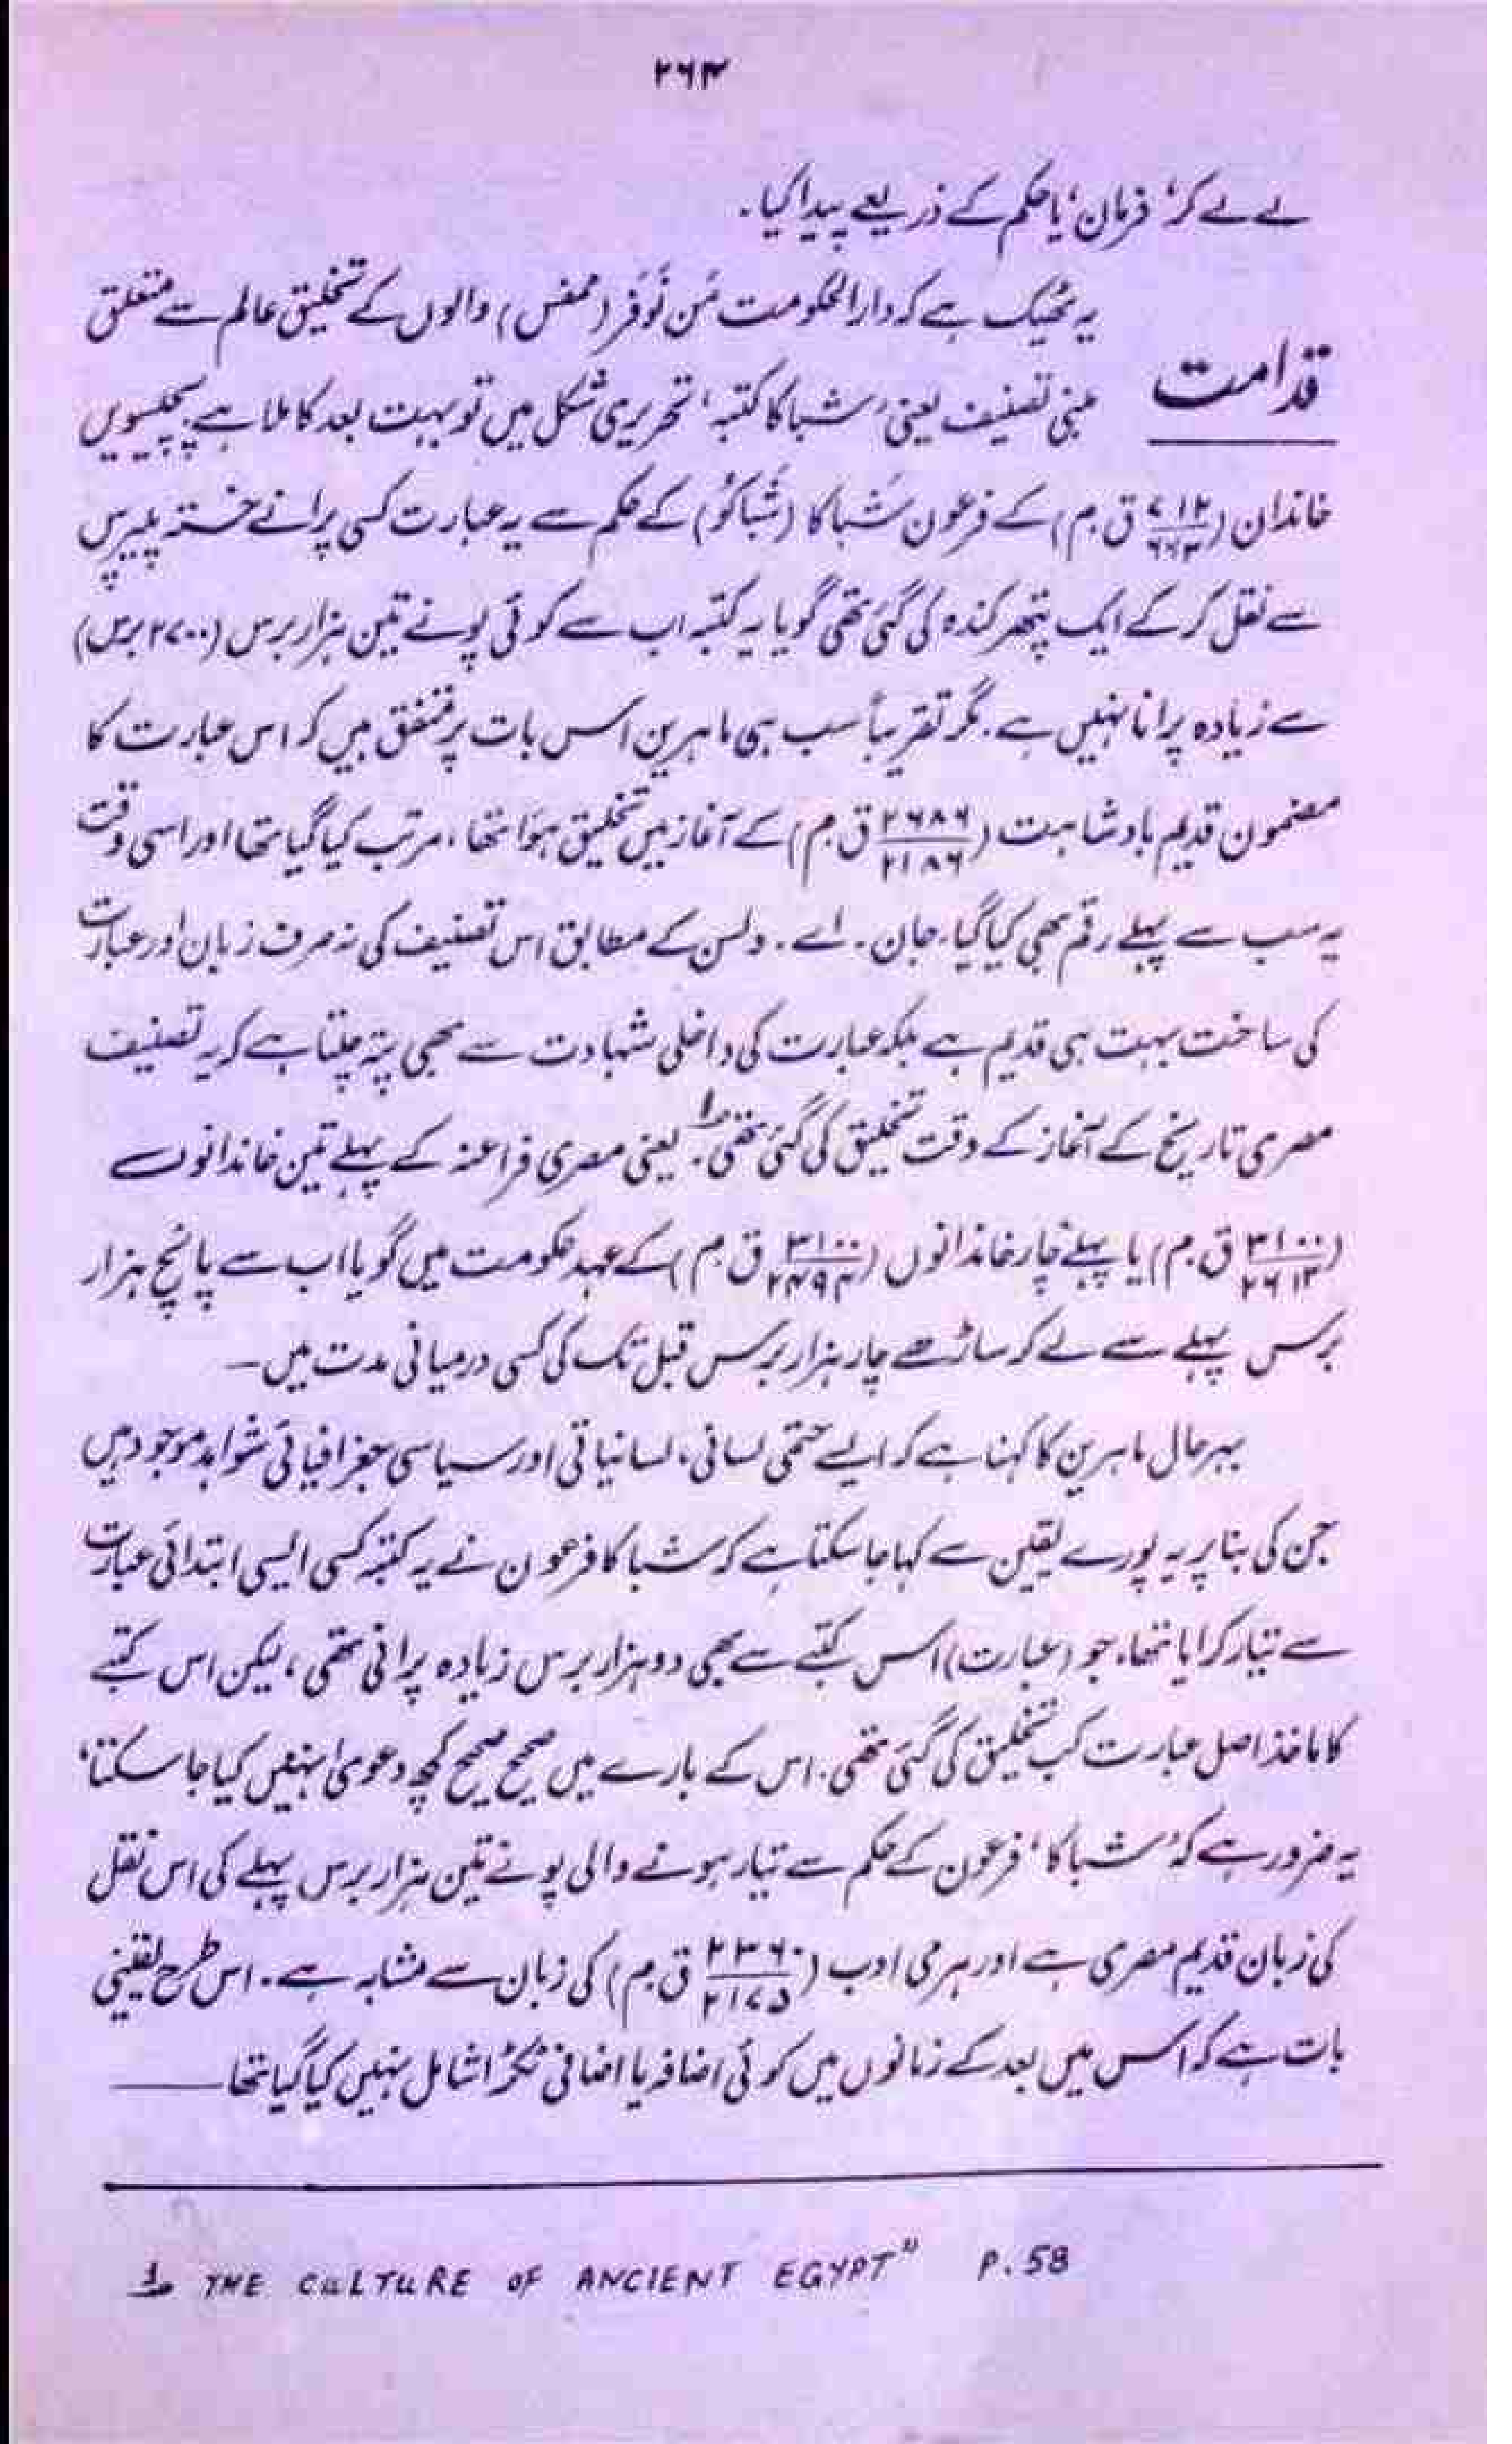 ۲۶۴
لے لے کر ‘فرمان’ یا حکم کے ذریعے پیدا کیا۔
قدامت
یہ ٹھیک ہے کہ دارالحکومت مَن نُوفَر (ممفس) والوں کے تخلیق عالم سے متعلق
مبنی تصنیف یعنی ‘شباکا کتبہ’ تحریری شکل میں تو بہت بعد کا ملا ہے۔ پچیسویں
خاندان (۷۱۲/۶۶۳ ق۔م) کے فرعون شَباکا (شَباکُو) کے حکم سے یہ عبارت کسی پرانے خستہ پیپرس
سے نقل کر کے ایک پتھر کندہ کی گئی تھی گویا یہ کتبہ اب سے کوئی پونے تین ہزار برس (۲۷۰۰ برس)
سے زیادہ پرانا نہیں ہے۔ مگر تقریباً سب ہی ماہرین اس بات پر متفق ہیں کہ اس عبارت کا
مضمون قدیم بادشاہت (۲۶۸۶/۲۱۸۶ ق۔م) کے آغاز میں تخلیق ہوا تھا، مرتب کیا گیا تھا اور اسی وقت
یہ سب سے پہلے رقم بھی کیا گیا۔ جان۔ اے۔ ولسن کے مطابق اس تصنیف کی نہ صرف زبان اور عبارت
کی ساخت بہت ہی قدیم ہے بلکہ عبارت کی داخلی شہادت سے بھی پتہ چلتا ہے کہ یہ تصنیف
مصری تاریخ کے آغاز کے وقت تخلیق کی گئی تھی۔ ۱؎ یعنی مصری فراعنہ کے پہلے تین خاندانوں
(۳۱۰۰/۲۶۱۳ ق۔م) یا پہلے چار خاندانوں (۳۱۰۰/۲۴۹۴ ق۔م) کے عہدِ حکومت میں گویا اب سے پانچ ہزار
برس پہلے سے لے کر ساڑھے چار ہزار برس قبل تک کی کسی درمیانی مدت میں۔
بہرحال ماہرین کا کہنا ہے کہ ایسے حتمی لسانی، لسانیاتی اور سیاسی جغرافیائی شواہد موجود ہیں
جن کی بنا پر یہ پورے یقین سے کہا جا سکتا ہے کہ شباکا فرعون نے یہ کتبہ کسی ایسی ابتدائی عبارت
سے تیار کرایا تھا، جو (عبارت) اس کتبے سے بھی دو ہزار برس زیادہ پرانی تھی، لیکن اس کتبے
کا ماخذ اصل عبارت کب تخلیق کی گئی تھی۔ اس کے بارے میں صحیح صحیح کچھ دعویٰ نہیں کیا جا سکتا،
یہ ضرور ہے کہ ‘شباکا’ فرعون کے حکم سے تیار ہونے والی پونے تین ہزار برس پہلے کی اس نقل
کی زبان قدیم مصری ہے اور ہرمی ادب (۲۳۶۰/۲۱۷۵ ق۔م) کی زبان سے مشابہ ہے۔ اس طرح یقینی
بات ہے کہ اس میں بعد کے زمانوں میں کوئی اضافہ یا اضافی ٹکڑا شامل نہیں کیا گیا تھا ——
۱؎ THE CULTURE OF ANCIENT EGYPT" P.58